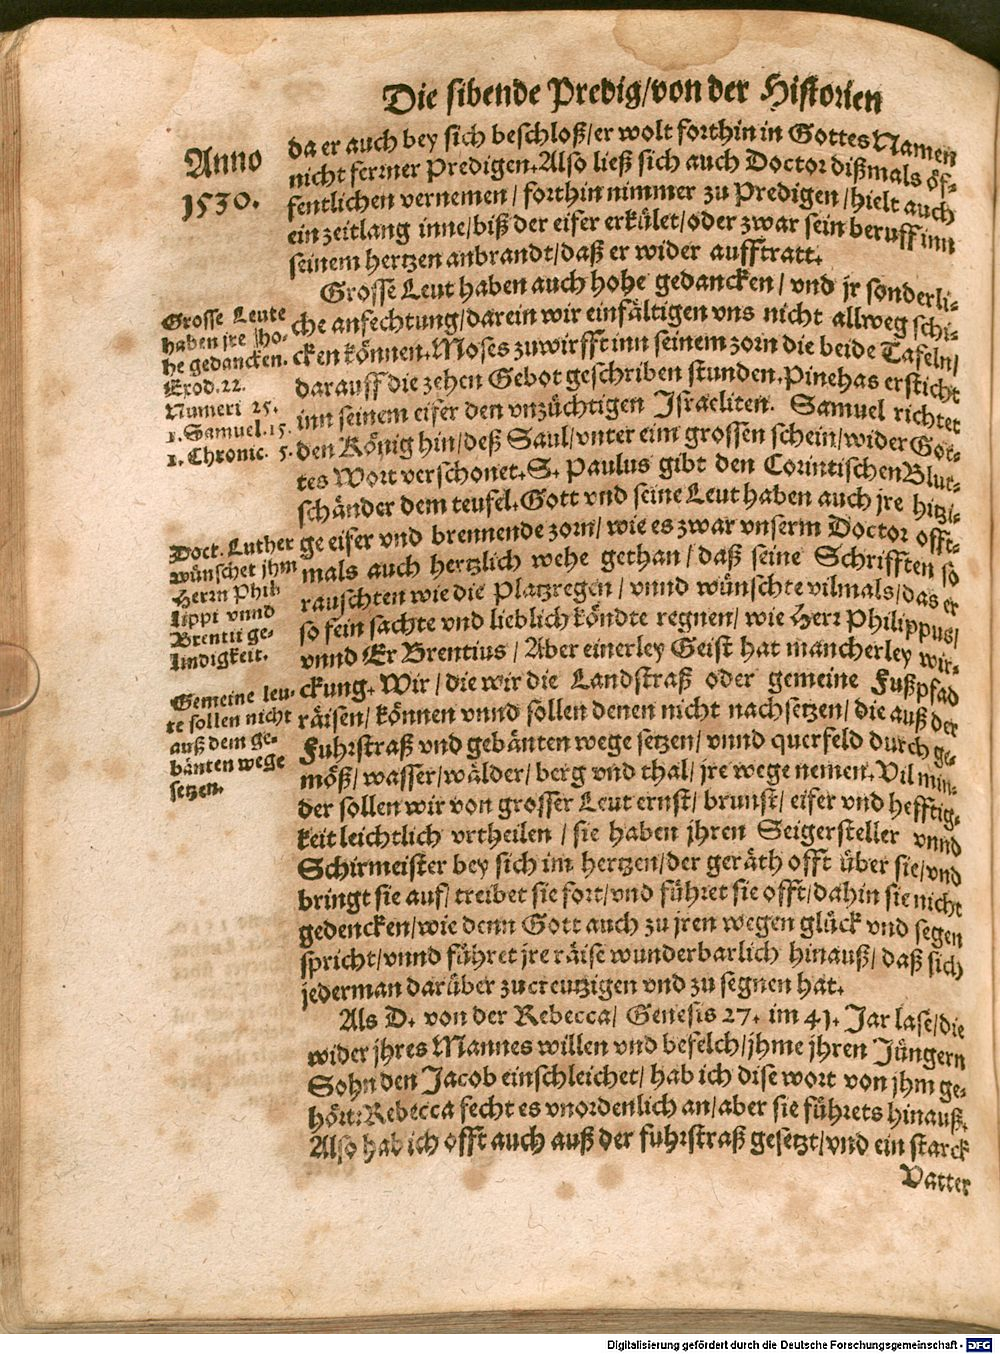 Die sibende Predig/von der Historien
Anno
1530.
da er auch bey sich beschloß/er wolt forthin in Gottes Namen
nicht ferrner Predigen. Also ließ sich auch Doctor dißmals öf-
fentlichen vernemen/ forthin nimmer zu Predigen/ hielt auch
ein zeitlang inne/ biß der eifer erkület/ oder zwar sein beruff inn
seinem hertzen anbrandt/ daß er wider aufftratt.
Grosse Leut haben auch hohe gedancken/ vnd jr sonderli-
che anfechtung/ darein wir einfältigen vns nicht allweg schi-
cken können. Moses zuwirfft inn seinem zorn die beide Tafeln/
darauff die zehen Gebot geschriben stunden. Pinehas ersticht
inn seinem eifer den vnzüchtigen Israeliten. Samuel richtet
den König hin/ deß Saul/ vnter eim grossen schein/ wider Got-
tes Wort verschonet. S. Paulus gibt den Corintischen Blut-
schänder dem teufel. Gott vnd seine Leut haben auch jre hitzi-
ge eifer vnd brennende zorn/ wie es zwar vnserm Doctor offt-
mals auch hertzlich wehe gethan/ daß seine Schrifften so
rauschten wie die Platzregen/ vnnd wünschte vilmals/ das er
so fein sachte vnd lieblich köndte regnen/ wie Herr Philippus/
vnnd Er Brentius/ Aber einerley Geist hat mancherley wir-
ckung. Wir/ die wir die Landstraß oder gemeine Fußpfad
räisen/ können vnnd sollen denen nicht nachsetzen/ die auß der
Fuhrstraß vnd gebänten wege setzen/ vnnd querfeld durch ge-
möß/ wasser/ wälder/ berg vnd thal/ jre wege nemen. Vil min-
der sollen wir von grosser Leut ernst/ brunst/ eifer vnd hefftig-
keit leichtlich vrtheilen/ sie haben jhren Seigersteller vnnd
Schirmeister bey sich im hertzen/ der geräth offt über sie/ vnd
bringt sie auf/ treibet sie fort/ vnd führet sie offt/ dahin sie nicht
gedencken/ wie denn Gott auch zu jren wegen glück vnd segen
spricht/ vnnd führet jre räise wunderbarlich hinauß/ daß sich
jederman darüber zu creutzigen vnd zu segnen hat.
Als D. von der Rebecca/ Genesis 27. im 41. Jar lase/ die
wider jhres Mannes willen vnd befelch/ jhme jhren Jüngern
Sohn den Jacob einschleichet/ hab ich dise wort von jhm ge-
hört: Rebecca fecht es vnordenlich an/ aber sie führets hinauß.
Also hab ich offt auch auß der fuhrstraß gesetzt/ vnd ein starck
Vatter
Grosse Leute
haben jre ho-
he gedancken.
Exod. 22.
Numeri 25.
1. Samuel. 15.
1. Chronic. 5.
Doct. Luther
wünschet jhm
Herrn Phi-
lippi vnnd
Brentii ge-
lindigkeit.
Gemeine leu-
te sollen nicht
auß dem ge-
bänten wege
setzen.
Digitalisierung gefördert durch die Deutsche Forschungsgemeinschaft - DFG